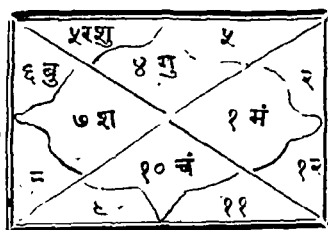 ५रशु ५
६ बु ४ गु २
७ श १ मं
= १० चं १२
९ ११